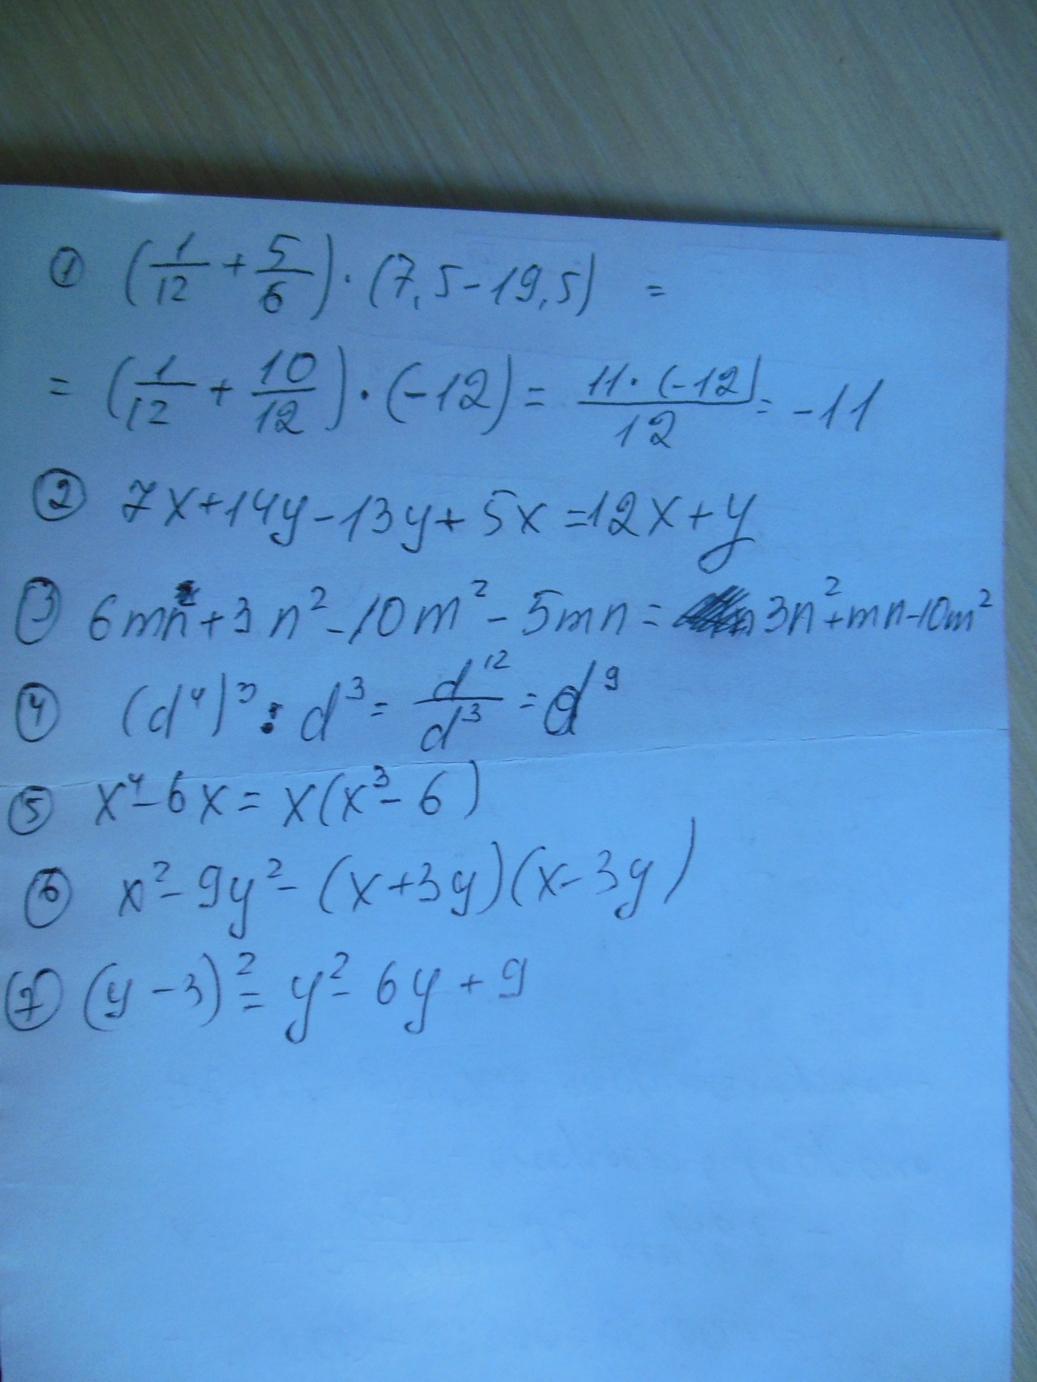 ① (1/12 + 5/6) · (7,5 - 19,5) =
= (1/12 + 10/12) · (-12) = 11 · (-12)/12 = -11
② 7x + 14y - 13y + 5x = 12x + y
③ 6mn + 3n² - 10m² - 5mn = 3n² + mn - 10m²
④ (d⁴)³ : d³ = d¹²/d³ = d⁹
⑤ x⁴ - 6x = x(x³ - 6)
⑥ x² - 9y² - (x + 3y)(x - 3y)
⑦ (y - 3)² = y² - 6y + 9